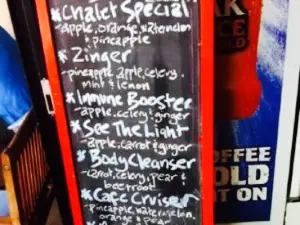 *Chalet Special
-apple, orange, watermelon
& pineapple
*Zinger
-pineapple, apple, celery,
mint & lemon
*Immune Booster
-apple, celery & ginger
*See The Light
-apple, carrot & ginger
*Body Cleanser
-carrot, celery, pear &
beetroot
*Cafe Cruiser
-pineapple, watermelon,
orange & pear
AK
ICE
OLD
OFFEE
OLD
T ON